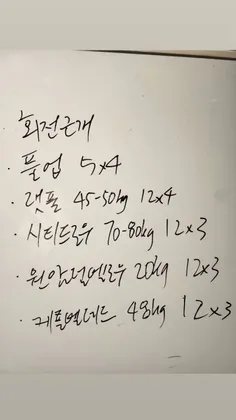 회전근개
· 풀업 5x4
· 랫풀 45-50kg 12x4
· 시티드로우 70-80kg 12x3
· 원암덤벨로우 20kg 12x3
· 48kg 12x3